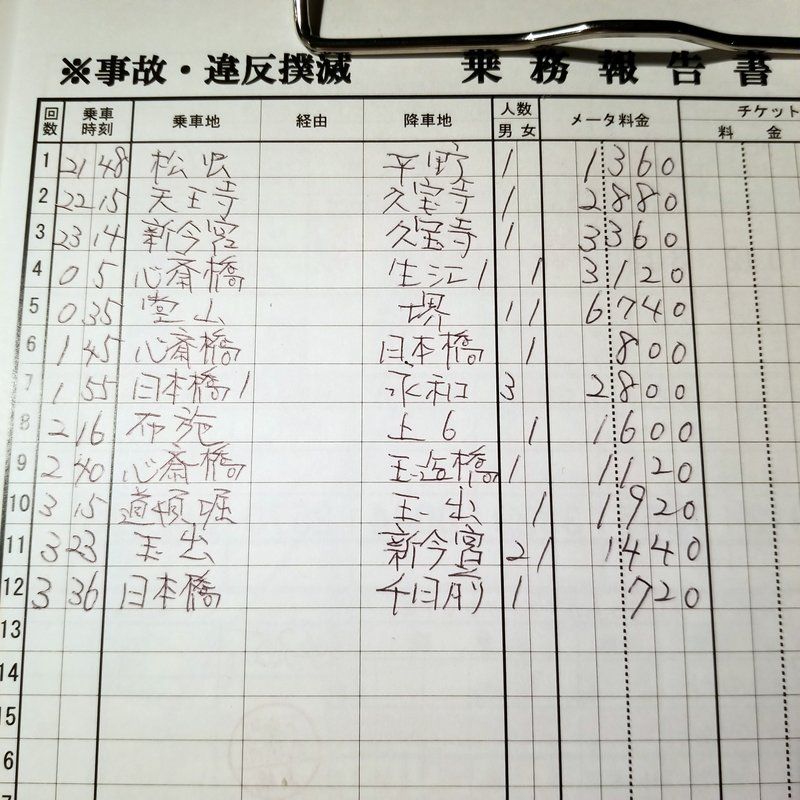 ※事故・違反撲滅 乗務報告書
回数 乗車時刻 乗車地 経由 降車地 人数 男 女 メータ料金 チケット 料 金
1 21 48 松虫 平野 1 1360
2 22 15 天王寺 久宝寺 1 2880
3 23 14 新今宮 久宝寺 1 3360
4 0 5 心斎橋 生江1 1 3120
5 0 35 堂山 堺 1 1 6740
6 1 45 心斎橋 日本橋 1 800
7 1 55 日本橋1 永和 3 2800
8 2 16 布施 上6 1 1600
9 2 40 心斎橋 玉造橋 1 1120
10 3 15 道頓堀 玉出 1 1920
11 3 23 玉出 新今宮 2 1 1440
12 3 36 日本橋 千日前 1 720
13
14
15
6